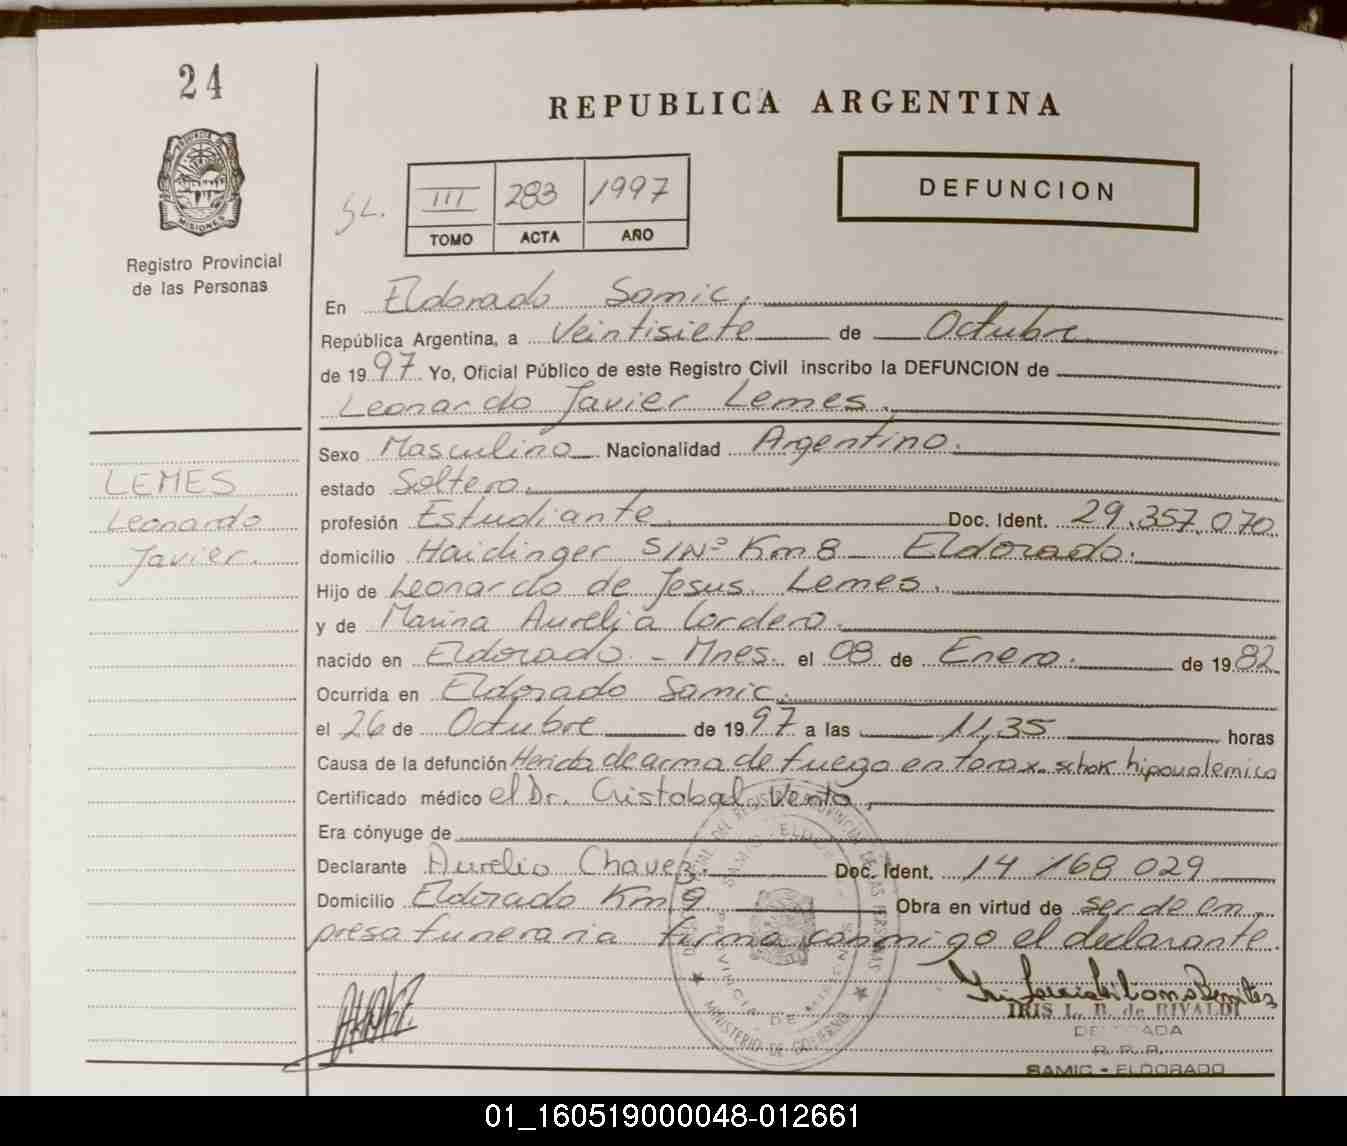 24
PROVINCIA DE
MISIONES
Registro Provincial
de las Personas
REPUBLICA ARGENTINA
SL.
III 283 1997
TOMO ACTA AÑO
DEFUNCION
En Eldorado Samic.
República Argentina, a Veintisiete de Octubre
de 1997 Yo, Oficial Público de este Registro Civil inscribo la DEFUNCION de
Leonardo Javier Lemes.
LEMES
Leonardo
Javier.
Sexo Masculino Nacionalidad Argentino.
estado Soltero.
profesión Estudiante Doc. Ident. 29.357.070
domicilio Haidinger S/Nº Km 8 - Eldorado.
Hijo de Leonardo de Jesus Lemes.
y de Marina Aurelia Cordero.
nacido en Eldorado - Mnes. el 08 de Enero. de 1982
Ocurrida en Eldorado Samic.
el 26 de Octubre de 1997 a las 11,35 horas
Causa de la defunción Herida de arma de fuego en torax. schok hipovolemico
Certificado médico el Dr. Cristobal Vento,
Era cónyuge de
Declarante Aurelio Chavez. Doc. Ident. 14 168 029
Domicilio Eldorado Km 9 Obra en virtud de ser de em
presa funeraria firma conmigo el declarante.
MINISTERIO DE GOBIERNO
PROVINCIA DE
IRIS L. B. de RIVALDI
DELEGADA
R. P. P.
SAMIC - ELDORADO
01_160519000048-012661